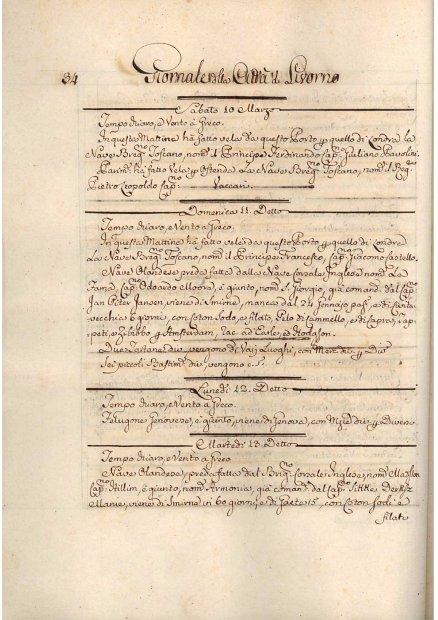 34 Giornale della Città di Livorno
Sabato 10 Marzo
Tempo chiaro, e Vento à Greco.
In questa Mattina hà fatto vela da questo Porto p quello di Londra la
Nave Brigno Toscano, nomo il Principe Ferdinando, Capo Giuliano Pavolini.
hà fatto vela p Ostenda la Nave Brigno Toscano, nomo il
Pietro Leopoldo Capo Vaccari.
Domenica 11. Detto
Tempo chiaro, e Vento à Greco.
In questa Mattina hà fatto vela da questo Porto p quello di Londra
La Nave Brigno Toscano, nomo il Principe Francesco, Capo Giacomo Castello.
Nave Olandese preda fatta dalla Nave Corsale Inglese nomo La
Fama, Capo Odoardo Moore, è giunto, nomo S. Giorgio, già comando dal Capo
Jan Piter Jansen, viene di Smirne, manca dal 24 Gennajo pasº, e di
vecchia 6 giorni, con Coton Sodo, e filato, Pelo di Cammello, e di Capra,
peti, e p Amsterdam, Rac ad Earle, ed Hodgson.
Due Tartane div, vengono di Varj Luoghi, con Mercdie p Div
Sei piccoli Bastimti div, vengono c. S.
Lunedì 12. Detto
Tempo chiaro, e Vento à Greco.
Felugone Genovese, è giunto, viene di Genova, con Mzie div p Diversi
Martedì 13. Detto
Tempo chiaro, e Vento à Greco
Nave Olandese, preda fatta dal Brigno Corsale Inglese, nomo
Capo Hillim, è giunto, nomo Armonia, già comando dal Capo Sitke Derksz
viene di Smirne in 60 giorni, e di Gaeta 15, con Coton Sodi e
filati